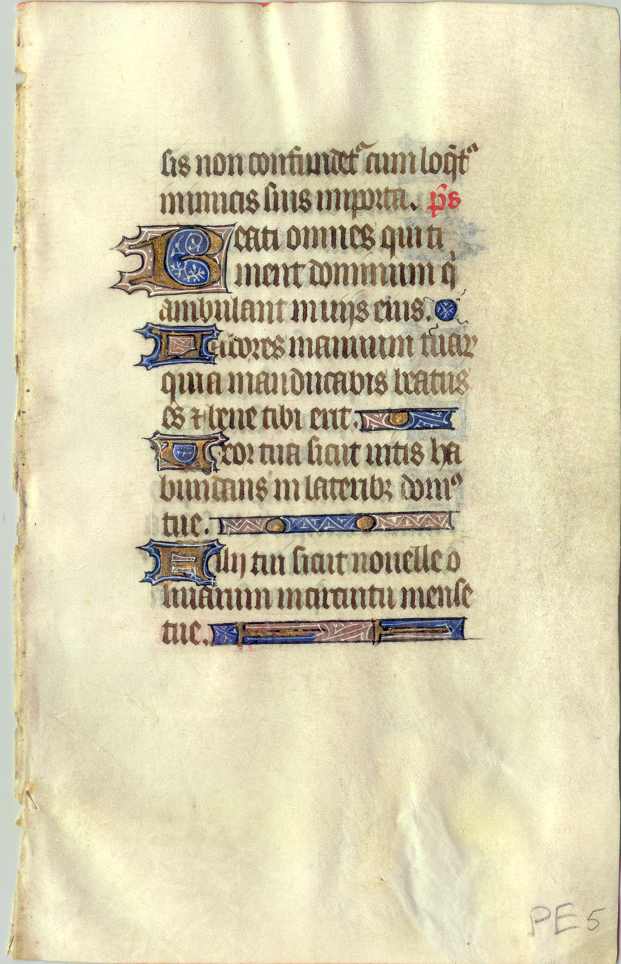 sis non confundet᷑ cum loqͥtᷣ
inimicis suis in porta. p̅s
Beati omnes qui ti
ment dominum qͥ
ambulant in uijs eius.
Labores manuum tuarꝝ
quia manducabis beatus
es ⁊ bene tibi erit.
Uxor tua sicut uitis ha
bundans in lateribꝫ domꝰ
tue.
Filij tui sicut nouelle o
liuarum in circuitu mense
tue.
PE 5